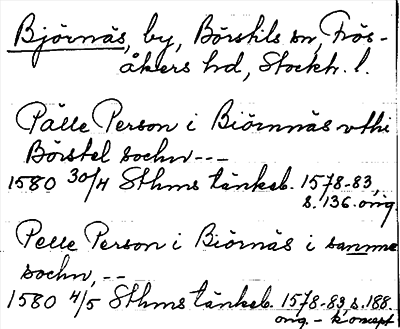 Björnäs, by, Börstils sn, Frös-
åkers hd, Stockh. l.
Pålle Person i Biörnnäs vthi
Börstel sochn ---
1580 30/4 Sthms tänkeb. 1578-83,
s. 136. orig.
Pelle Person i Biörnäs i samme
sochn, --
1580 4/5 Sthms tänkeb. 1578-83, s. 188.
orig. - koncept